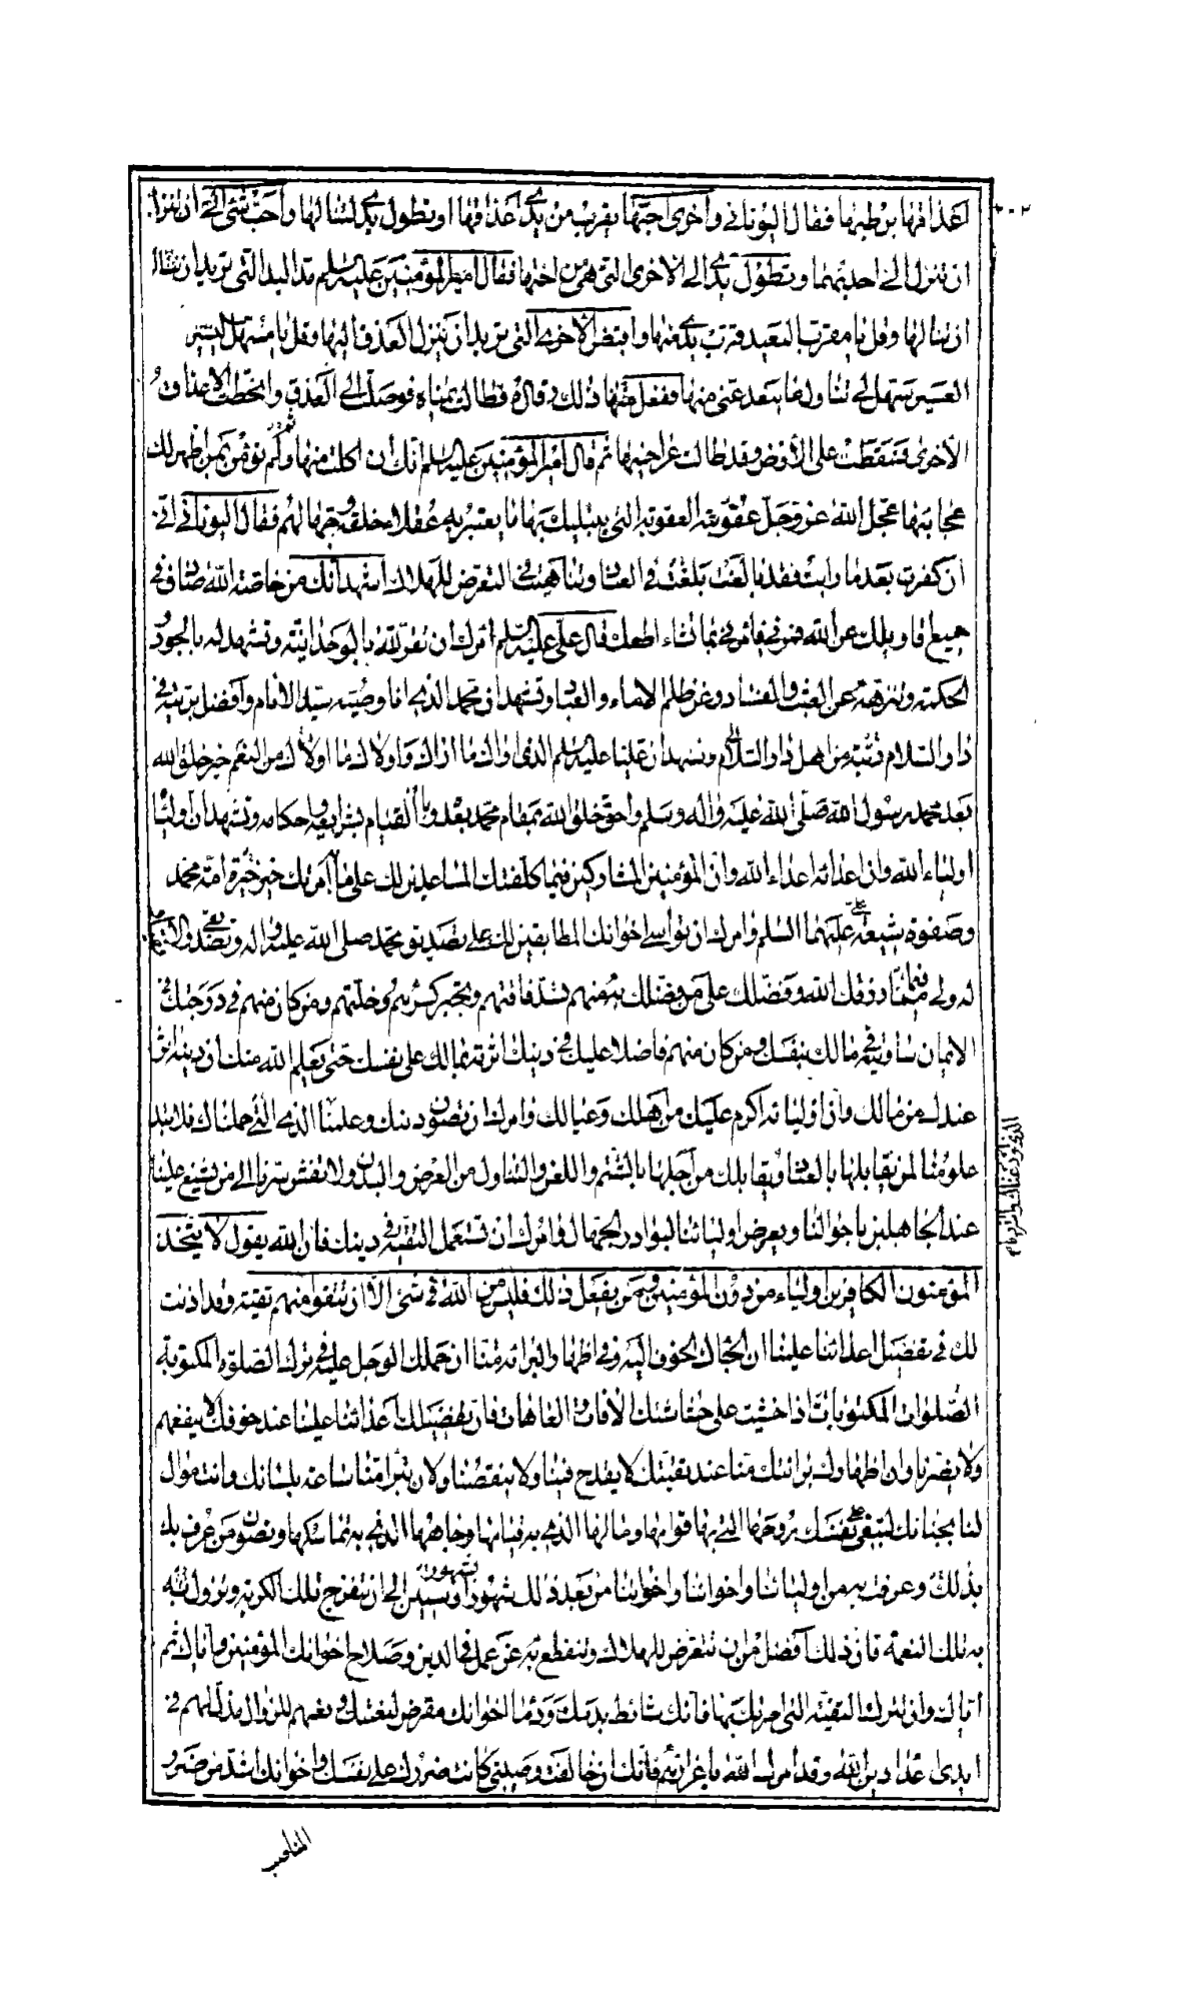 اعذاقها برطبها فقال اليوناني وأخرى احبها يقرب من يدي اعذاقها او تطول يدي لتنالها واحب شئ الي ان تنزل
ان تنزل الي احديهما وتطول يدي الى الاخرى التي هي من اختها فقال امير المؤمنين عليه السلم مد اليد التي تريد ان تنالها
ان ينالها وقل يا مقرب البعيد قرب يدي منها واقبض الاخرى التي تريد ان تنزل العذق اليها وقل يا مسهل العسير
العسير سهل لي تناول ما يبعد عني منها ففعل ذلك وقاله فطالت يمناه فوصلت الى العذق وانحطت الاعذاق
الاخرى فسقطت على الارض وقد طالت عراجينها ثم قال امير المؤمنين عليه السلم انك ان اكلت منها ولم تؤمن بمن اظهر لك
عجايبها عجل الله عز وجل عقوبته العقوبة التي يبتليك بها ما يعتبر به عقلاء خلقه وجهالهم فقال اليوناني اني
ان كفرت بعد ما رايت فقد بالغت في العناد وتناهيت في التعرض للهلاك اشهد انك من خاصة الله صادق في
جميع اقاويلك عن الله فمرني بما تشاء اطعك قال علي عليه السلم امرك ان تقر لله بالوحدانية وتشهد له بالجود
والحكمة وتنزهه عن العبث والفساد وعن ظلم الاماء والعباد وتشهد ان محمدا الذي انا وصيه سيد الانام وافضل رتبة في
دار السلام رتبة من اهل دار السلام وتشهد ان عليا عليه السلم الذي اراك ما اراك واولاك ما اولاك من النعم خير خلق الله
بعد محمد رسول الله صلى الله عليه واله وسلم واحق خلق الله بمقام محمد بعده وبالقيام بشرايعه واحكامه وتشهد ان اولياءه
اولياء الله وان اعدائه اعداء الله وان المؤمنين المشاركين فيما كلفتك المساعدين لك على ما امرتك خير خيرة امة محمد
وصفوة شيعة علي عليهما السلم وامرك ان تواسي اخوانك المطابقين لك على تصديق محمد صلى الله عليه واله وتصديقي والانقياد
له ولي مما رزقك الله وفضلك على من فضلك به منهم تسد فاقتهم وتجبر كسرهم وخلتهم ومن كان منهم في درجتك في
الايمان ساويته في مالك بنفسك ومن كان منهم فاضلا عليك في دينك اثرته بمالك على نفسك حتى يعلم الله منك ان دينه اثر
عندك من مالك وان اوليائه اكرم عليك من اهلك وعيالك وامرك ان تصون دينك وعلمنا الذي التي حملناك فلا تبد
علومنا لمن يقابلها بالعناد ويقابلك من اجلها بالشتم واللعن والتناول من العرض والبدن ولا تفش سرنا الى من يشنع علينا
عند الجاهلين باحوالنا ويعرض اوليائنا لبوادر الجهال وامرك ان تستعمل التقية في دينك فان الله يقول لا يتخذ
المؤمنون الكافرين اولياء من دون المؤمنين ومن يفعل ذلك فليس من الله في شئ الا ان تتقوا منهم تقية وقد اذنت
لك في تفضيل اعدائنا علينا ان الجأك الخوف اليه وفي اظهار البرائة منا ان حملك الوجل عليه وفي ترك الصلوة المكتوبة
الصلوات المكتوبات اذا خشيت على حشاشتك الافات والعاهات فان تفضيلك اعدائنا علينا عند خوفك لا ينفعهم
ولا يضرنا وان اظهارك برائتك منا عند تقيتك لا يقدح فينا ولا ينقصنا ولان تبرا منا ساعة بلسانك وانت موال
لنا بجنانك لتبقي على نفسك روحها التي بها قوامها ومالها الذي به قيامها وجاهها الذي به تماسكها وتصون من عرف بك
بذلك وعرفت به من اوليائنا واخواننا واخواتنا من بعد ذلك شهور وسنين الى ان تنفرج تلك الكربة وتزول به
به تلك النعمة فان ذلك افضل من ان تتعرض للهلاك وتنقطع به عن عمل في الدين وصلاح اخوانك المؤمنين واياك ثم
اياك وان تترك التقية التي امرتك بها فانك شائط بدمك ودماء اخوانك معرض لنعمتك ونعمهم للزوال مذل لهم في
ايدي اعداء دين الله وقد امرك الله باعزازهم فانك ان خالفت وصيتي كانت ضررك على نفسك واخوانك اشد من ضرر
المناصب